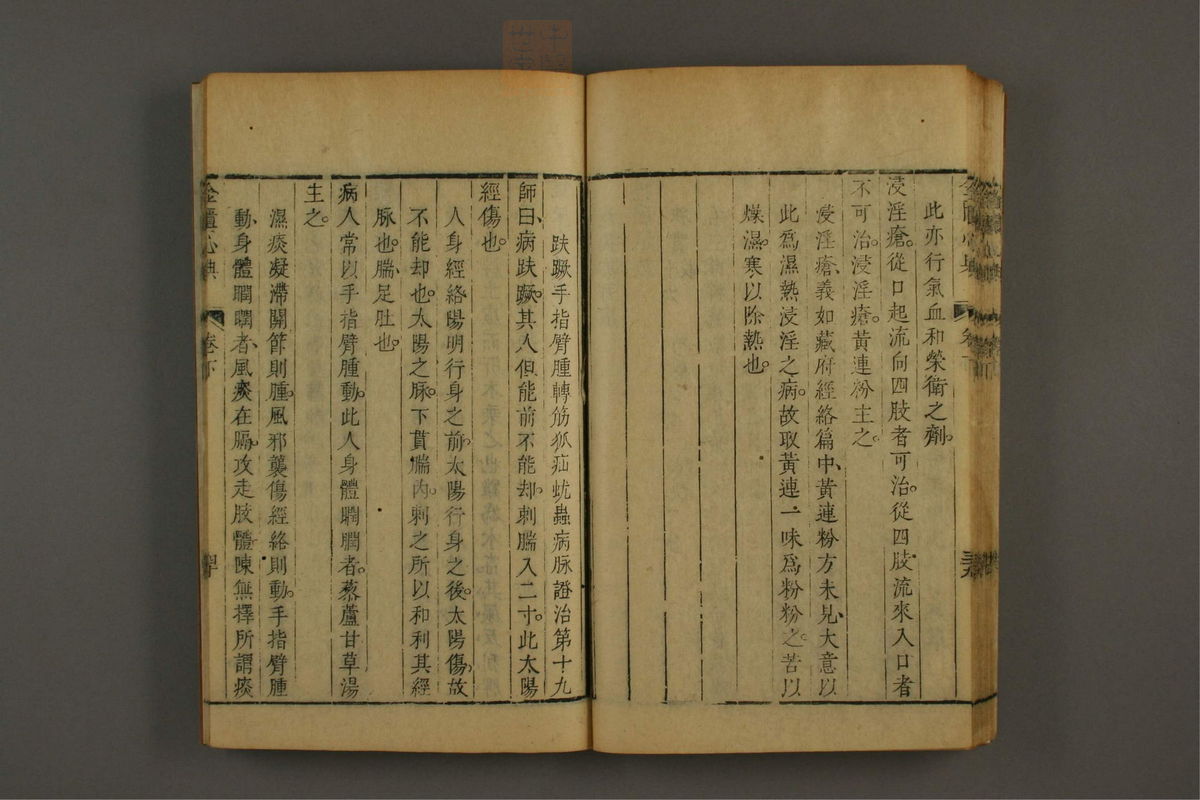 此亦行氣血和榮衛之劑。
浸淫瘡。從口起流向四肢者可治。從四肢流來入口者
不可治。浸淫瘡。黃連粉主之。
浸淫瘡、義如藏府經絡篇中、黃連粉方未見、大意以
此爲濕熱浸淫之病。故取黃連一味爲粉粉之。苦以
燥濕。寒以除熱也。
趺蹶手指臂腫轉筋狐疝蚘蟲病脉證治第十九
師曰、病趺蹶。其人但能前不能却。刺腨入二寸。此太陽
經傷也。
人身經絡陽明行身之前。太陽行身之後。太陽傷。故
不能却也。太陽之脉。下貫腨內。刺之所以和利其經
脉也。腨、足肚也。
病人常以手指臂腫動。此人身體瞤瞤者。藜蘆甘草湯
主之。
濕痰凝滯關節則腫。風邪襲傷經絡則動。手指臂腫
動、身體瞤瞤者、風痰在膈。攻走肢體。陳無擇所謂痰
金匱心典
卷下